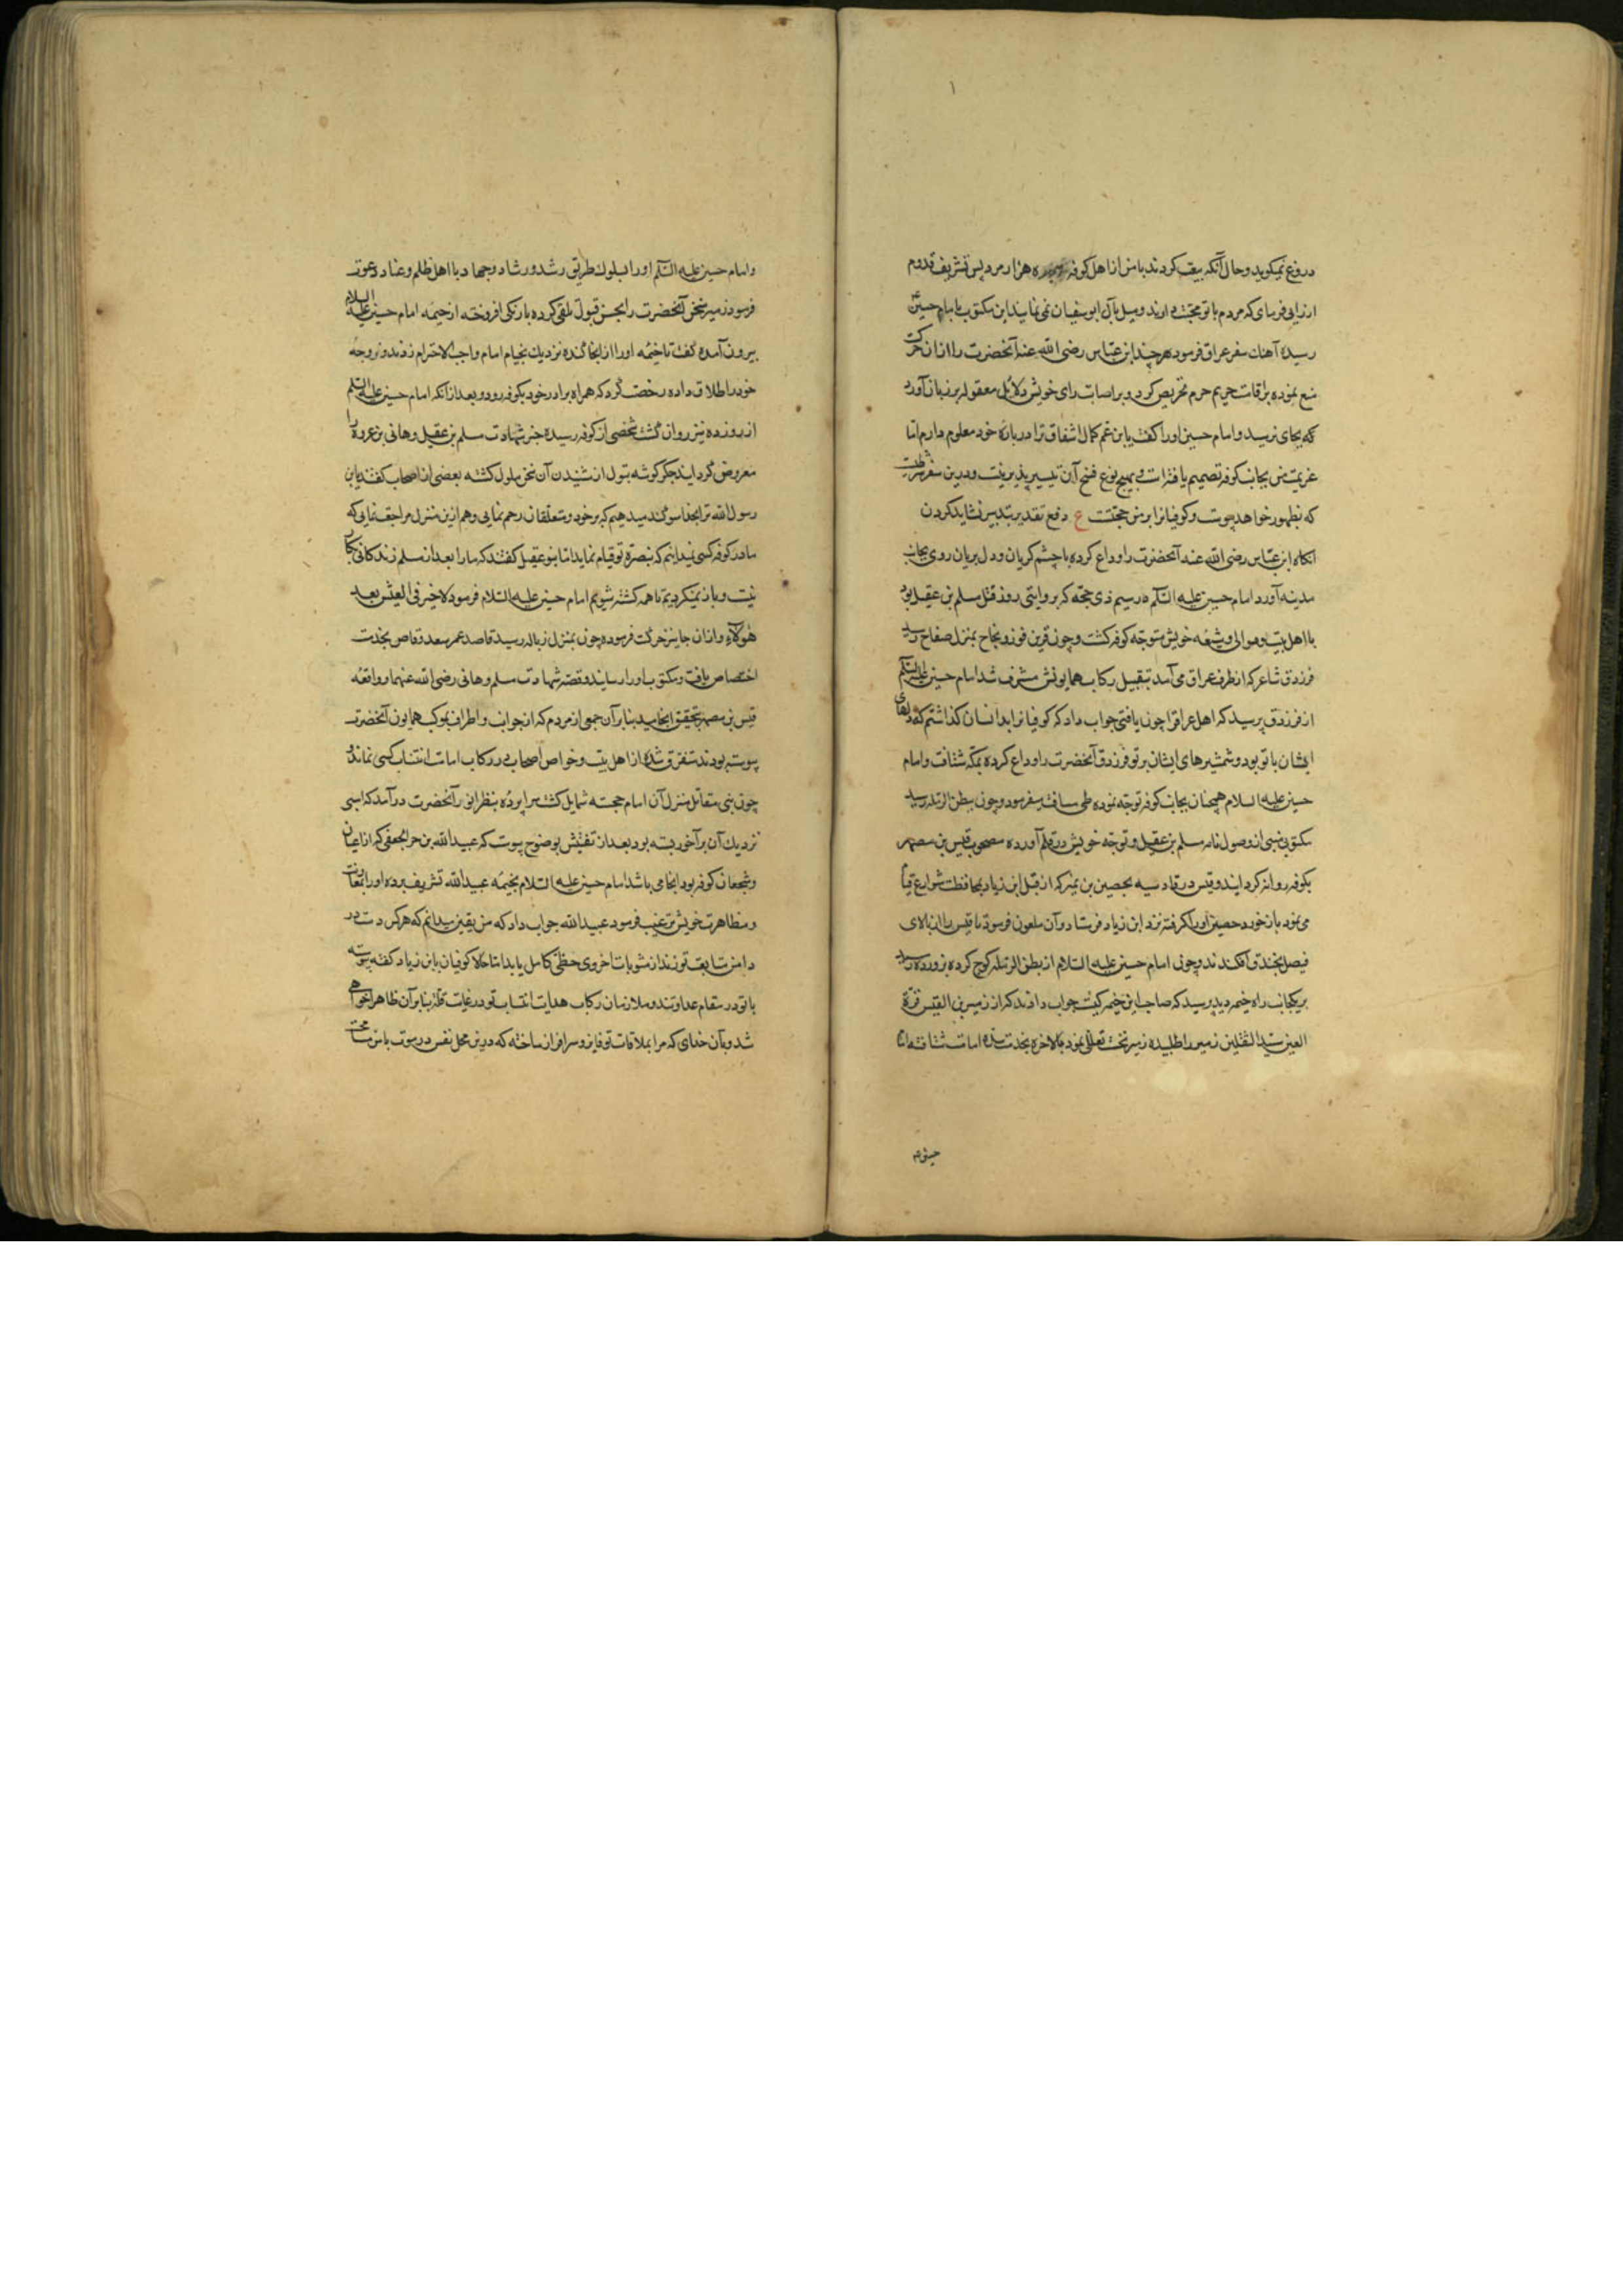 دروغ نمیکوید و حال آنکه بیعت کردند با من از اهل کوفه هزار مرد پس تشریف قدوم
ارزانی فرمای که مردم با تو محبت دارند و میل بآل ابو سفیان نمی نمایند این مکتوب بامام حسین
رسیده آهنک سفر عراق فرمود هر چند ابن عباس رضی الله عنه آنحضرت را از ان حرکت
منع نموده بر اقامت حریم حرم تحریص کرد و بر اصابت رای خویش دلائل معقول بر زبان آورد
که بجای نرسید و امام حسین او را کفت یا ابن عم کمال اشفاق ترا درباره خود معلوم دارم اما
عزیمت من بجانب کوفه تصمیم یافته است و بهیچ نوع فسخ آن تیسیر پذیر نیست و درین سفر
که بظهور خواهد پیوست و کوفیانرا بر من حجتست ع دفع تقدیر بتدبیر نشاید کردن
انکاه ابن عباس رضی الله عنه آنحضرت را وداع کرده با چشم کریان و دل بریان روی بجانب
مدینه آورد امام حسین علیه السلم در سیم ذی حجه که بروایتی روز قتل مسلم بن عقیل بود
با اهل بیت و موالی و شیعه خویش متوجه کوفه کشت و چون قرین فوز و نجاح بمنزل صفاح رسید
فرزدق شاعر که از طرف عراق می آمد بتقبیل رکاب همایونش مشرف شد امام حسین علیه السلم
از فرزدق پرسید که اهل عراقرا چون یافتی جواب داد که کوفیانرا بدانسان کذاشتم که دلهای
ایشان با تو بود و شمشیرهای ایشان بر تو فرزدق آنحضرت را وداع کرده بمکه شتافت و امام
حسین علیه السلام همچنان بجانب کوفه توجه نموده طی مسافت سفر میفرمود و چون ببطن الرمله رسید
مکتوبی مبنی از وصول نامه مسلم بن عقیل و توجه خویش در قلم آورده مصحوب قیس بن مصهر
بکوفه روانه کردانید و قیس در قادسیه بحصین بن نمیر که از قبل ابن زیاد بمحافظت شوارع قیام
می نمود باز خورد حصین او را کرفته نزد ابن زیاد فرستاد و آن ملعون فرمود تا قیس را از بالای
بخندق افکندند و چون امام حسین علیه السلام از بطن الرمله کوچ کرده بزورده رسید
بر یکجانب راه خیمه دید پرسید که صاحب این خیمه کیست جواب دادند که از زهیر بن القین قرة
العین سید الثقلین زهیر را طلبیده زهیر نخست تعلل نمود بالاخره بخدمت سده امامت شتافته اما
و امام حسین علیه السلم او را بسلوک طریق رشد و رشاد و جهاد با اهل ظلم و عناد دعوت
فرمود زهیر سخن آنحضرت را بحسن قبول تلقی کرده با رنکی افروخته از خیمه امام حسین علیه السلام
بیرون آمده کفت تا خیمه او را از انجا کنده نزدیک بخیام امام واجب الاحترام زدند و زوجه
خود را طلاق داده رخصت کرد که همراه برادر خود بکوفه رود و بعد از آنکه امام حسین علیه السلم
از زورده نیز روان کشت شخصی از کوفه رسیده خبر شهادت مسلم بن عقیل و هانی بن عروه را
معروض کردانید جکر کوشه بتول از شنیدن آن سخن ملول کشته بعضی از اصحاب کفتند یا ابن
رسول الله ترا بخدا سوکند میدهیم که بر خود و متعلقان رحم نمایی و هم از این منزل مراجعت نمایی که
ما در کوفه کسی نمیدانیم که بنصرة تو قیام نماید اما بنو عقیل کفتند که ما را بعد از مسلم زندکانی بکار
نیست و باز نمیکردیم تا همه کشته شویم امام حسین علیه السلام فرمود لا خیر فی العیش بعد
هؤلاء و از ان جا نیز حرکت فرموده چون بمنزل زباله رسید قاصد عمر سعد وقاص بخدمت
اختصاص یافت و مکتوب او را رسانید و قصه شهادت مسلم و هانی رضی الله عنهما و واقعه
قیس بن مصهر بتحقیق انجامید بنا بر آن جمعی از مردم که از جوانب و اطراف بموکب همایون آنحضرت
پیوسته بودند متفرق شده از اهل بیت و خواص اصحاب در رکاب امامت انتساب کسی نماند و
چون بنی مقاتل منزل آن امام خجسته شمایل کشت سراپرده بنظر انور آنحضرت درآمد که اسبی
نزدیک آن بر آخور بسته بود بعد از تفتیش بوضوح پیوست که عبید الله بن حر الجعفی که از اعیان
و شجعان کوفه بود انجا می باشد امام حسین علیه السلام بخیمه عبید الله تشریف برده او را بمعاونت
و مظاهرت خویش ترغیب فرمود عبید الله جواب داد که من یقین میدانم که هر کس دست در
دامن متابعت تو زند از مثوبات اخروی حظی کامل یابد اما حالا کوفیان با ابن زیاد کفته پیوسته
با تو در مقام عداوتند و ملازمان رکاب هدایت انتساب تو در غایت قلة بنا بر آن ظاهرا خواهی
شد و بآن خدای که مرا بملاقات تو فایز و سرافراز ساخته که درین محل نفس در موت با من